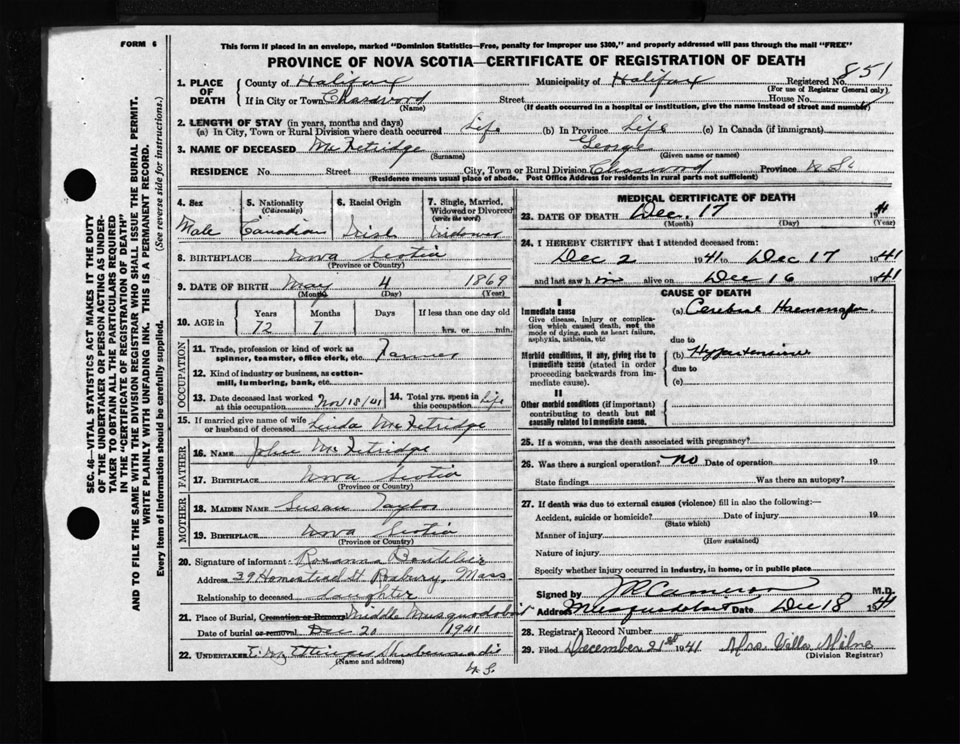 FORM 6
This form if placed in an envelope, marked "Dominion Statistics—Free, penalty for improper use $300," and properly addressed will pass through the mail "FREE"
PROVINCE OF NOVA SCOTIA—CERTIFICATE OF REGISTRATION OF DEATH
SEC. 46—VITAL STATISTICS ACT MAKES IT THE DUTY
OF THE UNDERTAKER OR PERSON ACTING AS UNDER-
TAKER TO OBTAIN ALL THE PARTICULARS REQUIRED
IN THE "CERTIFICATE OF REGISTRATION OF DEATH"
AND TO FILE THE SAME WITH THE DIVISION REGISTRAR WHO SHALL ISSUE THE BURIAL PERMIT.
WRITE PLAINLY WITH UNFADING INK. THIS IS A PERMANENT RECORD.
Every item of information should be carefully supplied. (See reverse side for instructions.)
1. PLACE OF DEATH County of Halifax Municipality of Halifax Registered No. 851
(For use of Registrar General only)
If in City or Town Chaswood Street House No.
(Name) (If death occurred in a hospital or institution, give the name instead of street and number)
2. LENGTH OF STAY (in years, months and days)
(a) In City, Town or Rural Division where death occurred Life (b) In Province Life (c) In Canada (if immigrant)
3. NAME OF DECEASED McFetridge George
(Surname) (Given name or names)
RESIDENCE No. Street City, Town or Rural Division Chaswood Province N.S.
(Residence means usual place of abode. Post Office Address for residents in rural parts not sufficient)
4. Sex 5. Nationality (Citizenship) 6. Racial Origin 7. Single, Married, Widowed or Divorced (write the word)
Male Canadian Irish Widower
8. BIRTHPLACE Nova Scotia
(Province or Country)
9. DATE OF BIRTH May 4 1869
(Month) (Day) (Year)
10. AGE in Years Months Days If less than one day old
72 7 hrs. or min.
OCCUPATION
11. Trade, profession or kind of work as spinner, teamster, office clerk, etc. Farmer
12. Kind of industry or business, as cotton-mill, lumbering, bank, etc.
13. Date deceased last worked at this occupation Nov 18/41 14. Total yrs. spent in this occupation Life
15. If married give name of wife or husband of deceased Linda McFetridge
FATHER
16. NAME John McFetridge
17. BIRTHPLACE Nova Scotia
(Province or Country)
MOTHER
18. MAIDEN NAME Susan Taylor
19. BIRTHPLACE Nova Scotia
(Province or Country)
20. Signature of informant Roxanna Boutilier
Address 39 Homestead St Roxbury, Mass
Relationship to deceased daughter
21. Place of Burial, Cremation or Removal Middle Musquodoboit
Date of burial or removal Dec 20 1941
22. UNDERTAKER Shubenacadie
(Name and address)
N.S.
MEDICAL CERTIFICATE OF DEATH
23. DATE OF DEATH Dec. 17 1941
(Month) (Day)
24. I HEREBY CERTIFY that I attended deceased from:
Dec 2 1941 to Dec 17 1941
and last saw him alive on Dec 16 1941
CAUSE OF DEATH
I
Immediate cause (a) Cerebral Haemorrhage
Give disease, injury or complication which caused death, not the mode of dying, such as heart failure, asphyxia, asthenia, etc
due to
Morbid conditions, if any, giving rise to immediate cause (stated in order proceeding backwards from immediate cause). (b) Hypertension
due to
(c)
II
Other morbid conditions (if important) contributing to death but not causally related to immediate cause.
25. If a woman, was the death associated with pregnancy?
26. Was there a surgical operation? No Date of operation 19
State findings Was there an autopsy?
27. If death was due to external causes (violence) fill in also the following:—
Accident, suicide or homicide? Date of injury 19
(State which)
Manner of injury
(How sustained)
Nature of injury
Specify whether injury occurred in industry, in home, or in public place
Signed by Cameron M.D.
Address Musquodoboit Date Dec 18 1941
28. Registrar's Record Number
29. Filed December 21st 1941 Mrs. Wella Milne
(Division Registrar)